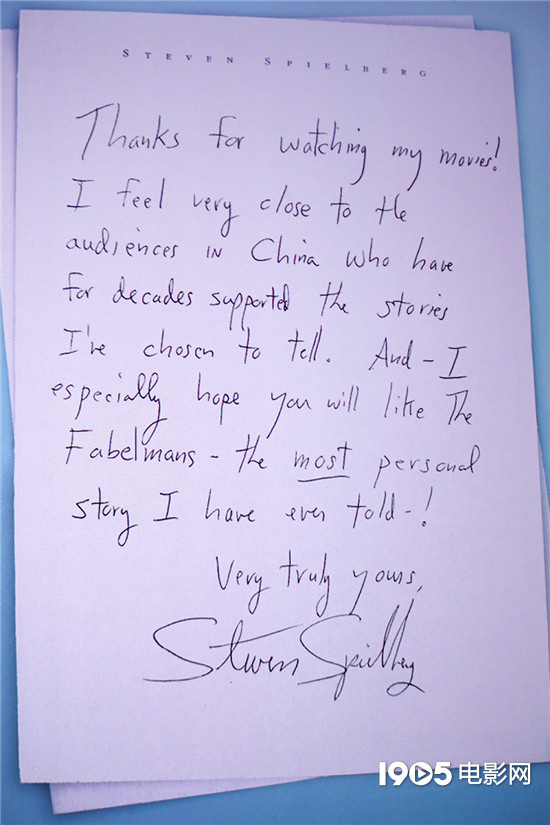 STEVEN SPIELBERG
Thanks for watching my movies!
I feel very close to the
audiences IN China who have
for decades supported the stories
I've chosen to tell. And - I
especially hope you will like The
Fabelmans - the most personal
story I have ever told - !
Very truly yours,
Steven Spielberg
1905电影网